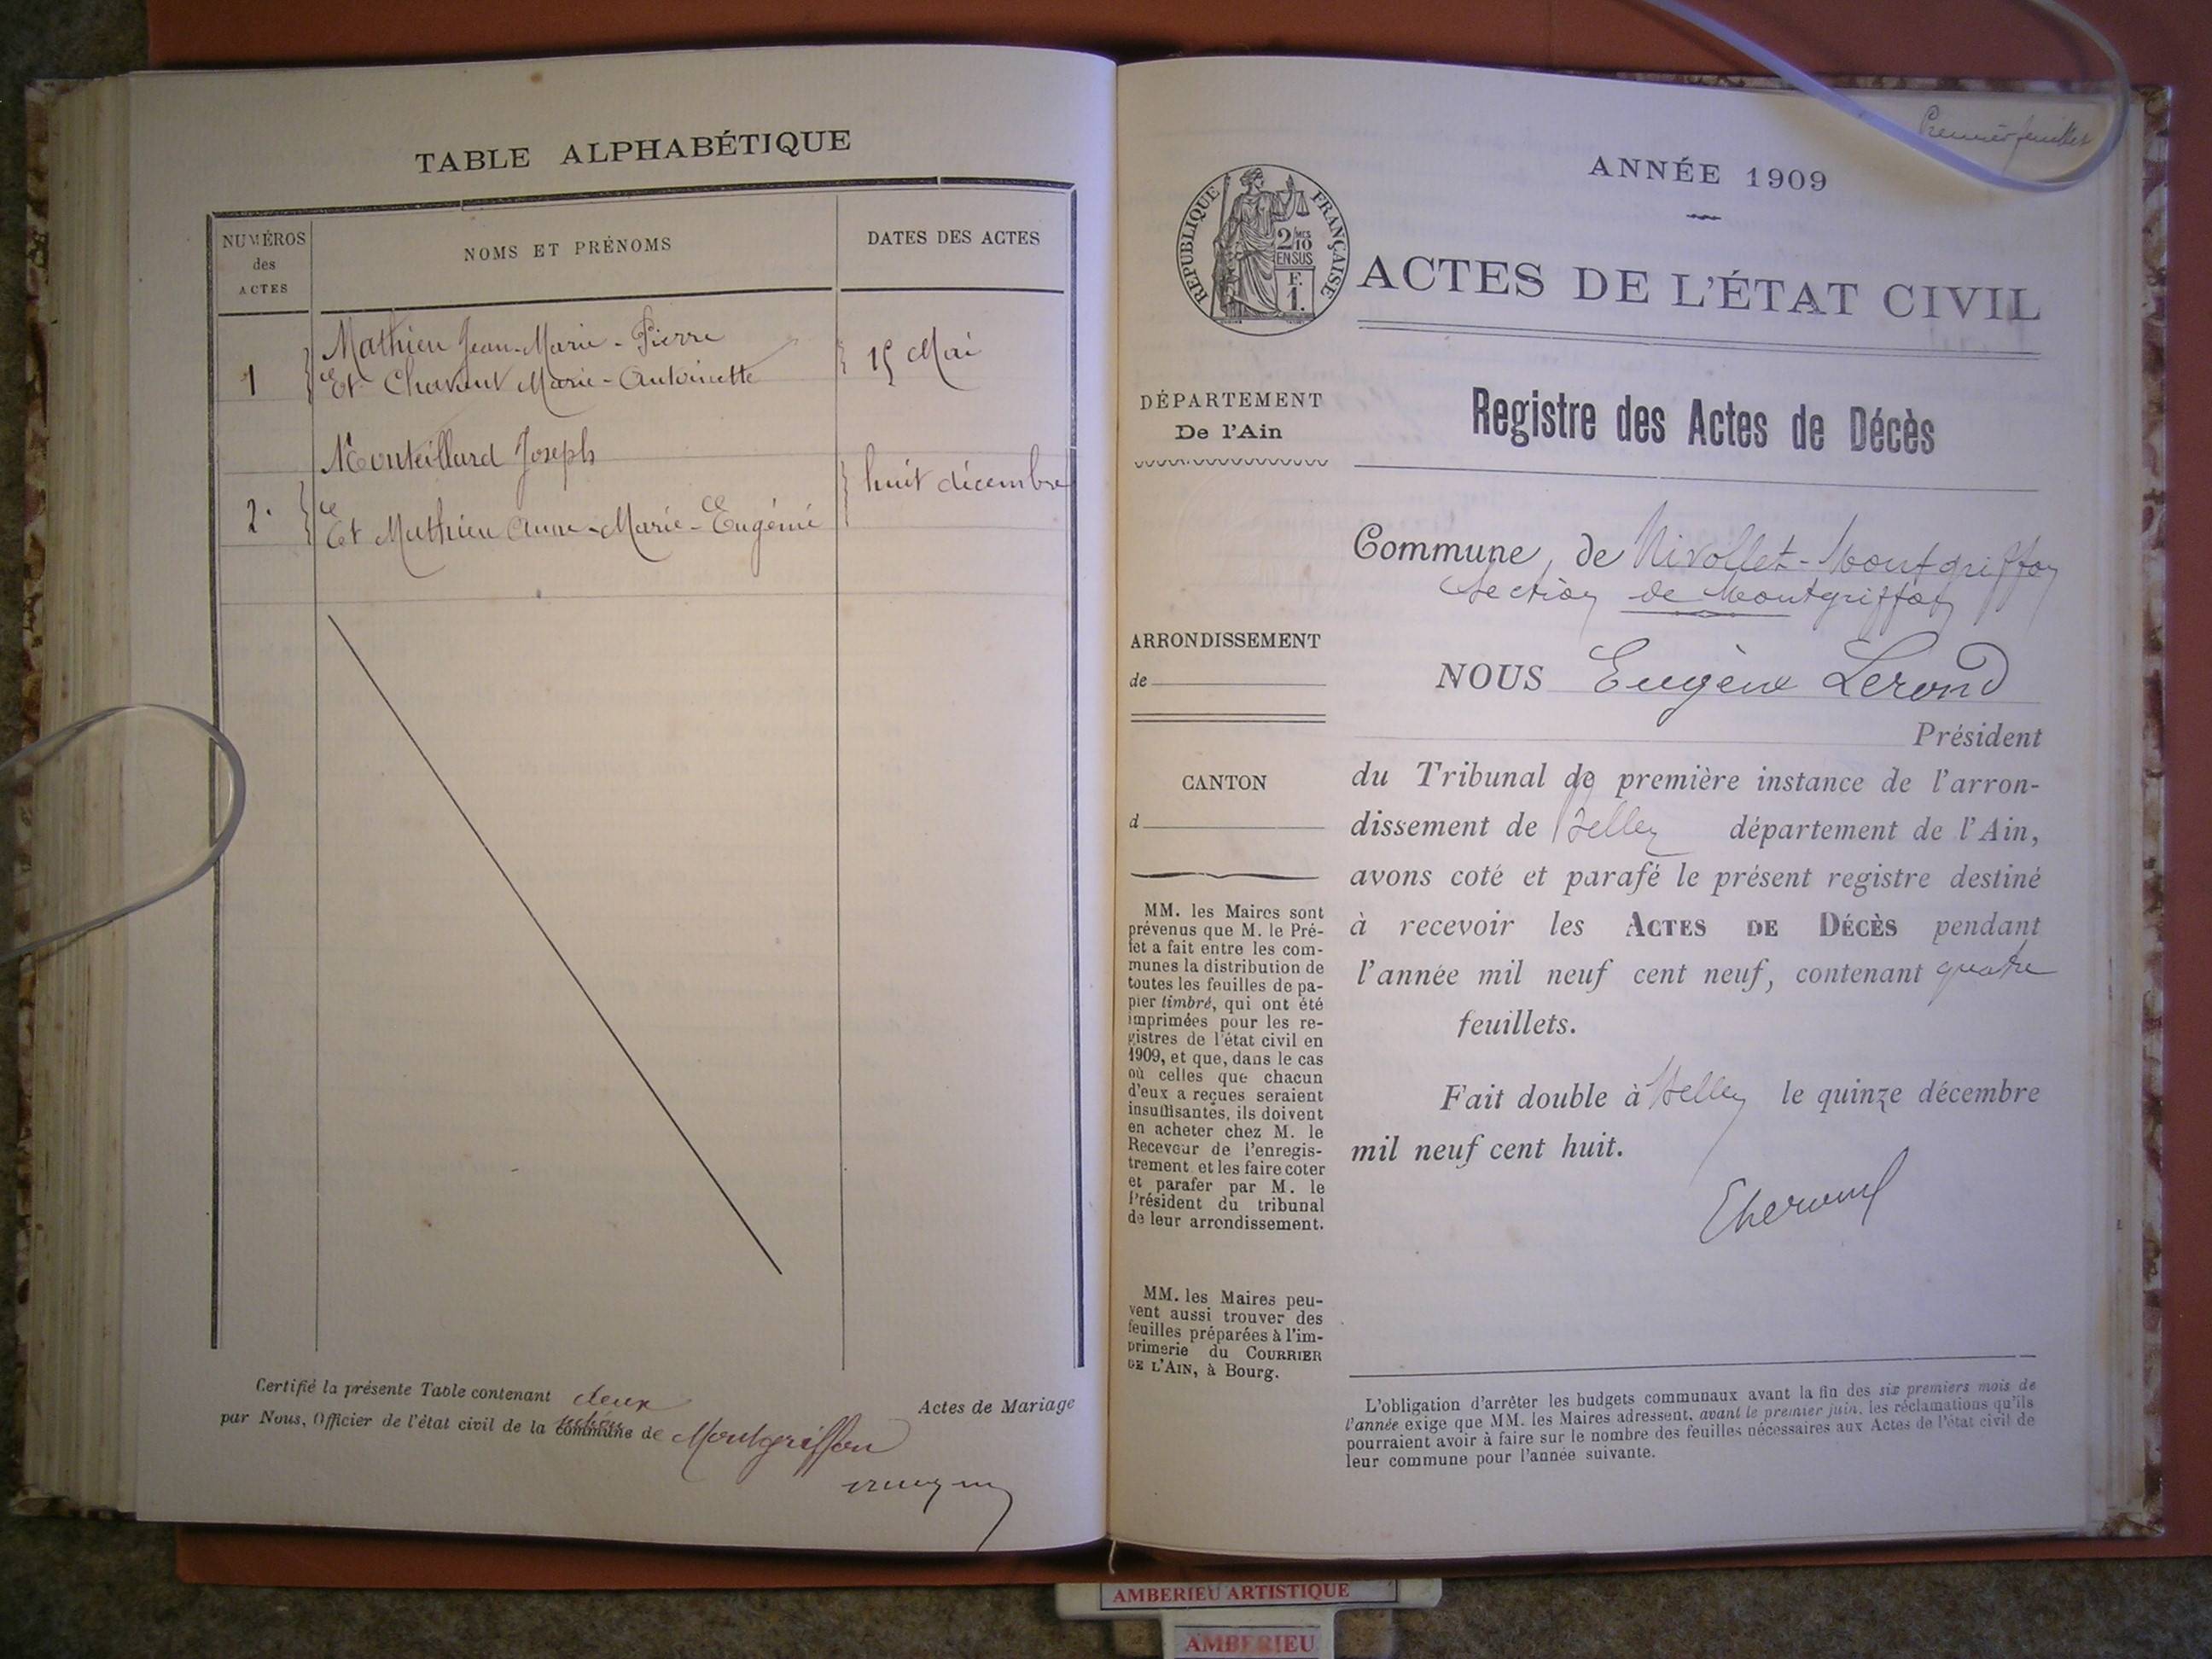 TABLE ALPHABÉTIQUE
NUMÉROS
des
ACTES
NOMS ET PRÉNOMS
DATES DES ACTES
1
Mathieu Jean-Marie-Pierre
Et Chavent Marie-Antoinette
15 Mai
2.
Monteillard Joseph
Et Mathieu Anne-Marie-Eugénie
huit décembre
Certifié la présente Table contenant deux
Actes de Mariage
par Nous, Officier de l'état civil de la section commune de Montgriffon
Premier feuillet
ANNÉE 1909
RÉPUBLIQUE FRANÇAISE
2/10 MES
EN SUS
F.
1.
ACTES DE L'ÉTAT CIVIL
DÉPARTEMENT
De l'Ain
ARRONDISSEMENT
de
CANTON
d
MM. les Maires sont
prévenus que M. le Pré-
fet a fait entre les com-
munes la distribution de
toutes les feuilles de pa-
pier timbré, qui ont été
imprimées pour les re-
gistres de l'état civil en
1909, et que, dans le cas
où celles que chacun
d'eux a reçues seraient
insuffisantes, ils doivent
en acheter chez M. le
Receveur de l'enregis-
trement et les faire coter
et parafer par M. le
Président du tribunal
de leur arrondissement.
MM. les Maires peu-
vent aussi trouver des
feuilles préparées à l'im-
primerie du COURRIER
DE L'AIN, à Bourg.
Registre des Actes de Décès
Commune de Nivollet-Montgriffon
Section de Montgriffon
NOUS Eugène Lerond
Président
du Tribunal de première instance de l'arron-
dissement de Belley département de l'Ain,
avons coté et parafé le présent registre destiné
à recevoir les ACTES DE DÉCÈS pendant
l'année mil neuf cent neuf, contenant quatre
feuillets.
Fait double à Belley le quinze décembre
mil neuf cent huit.
L'obligation d'arrêter les budgets communaux avant la fin des six premiers mois de
l'année exige que MM. les Maires adressent, avant le premier juin, les réclamations qu'ils
pourraient avoir à faire sur le nombre des feuilles nécessaires aux Actes de l'état civil de
leur commune pour l'année suivante.
AMBERIEU ARTISTIQUE
AMBERIEU